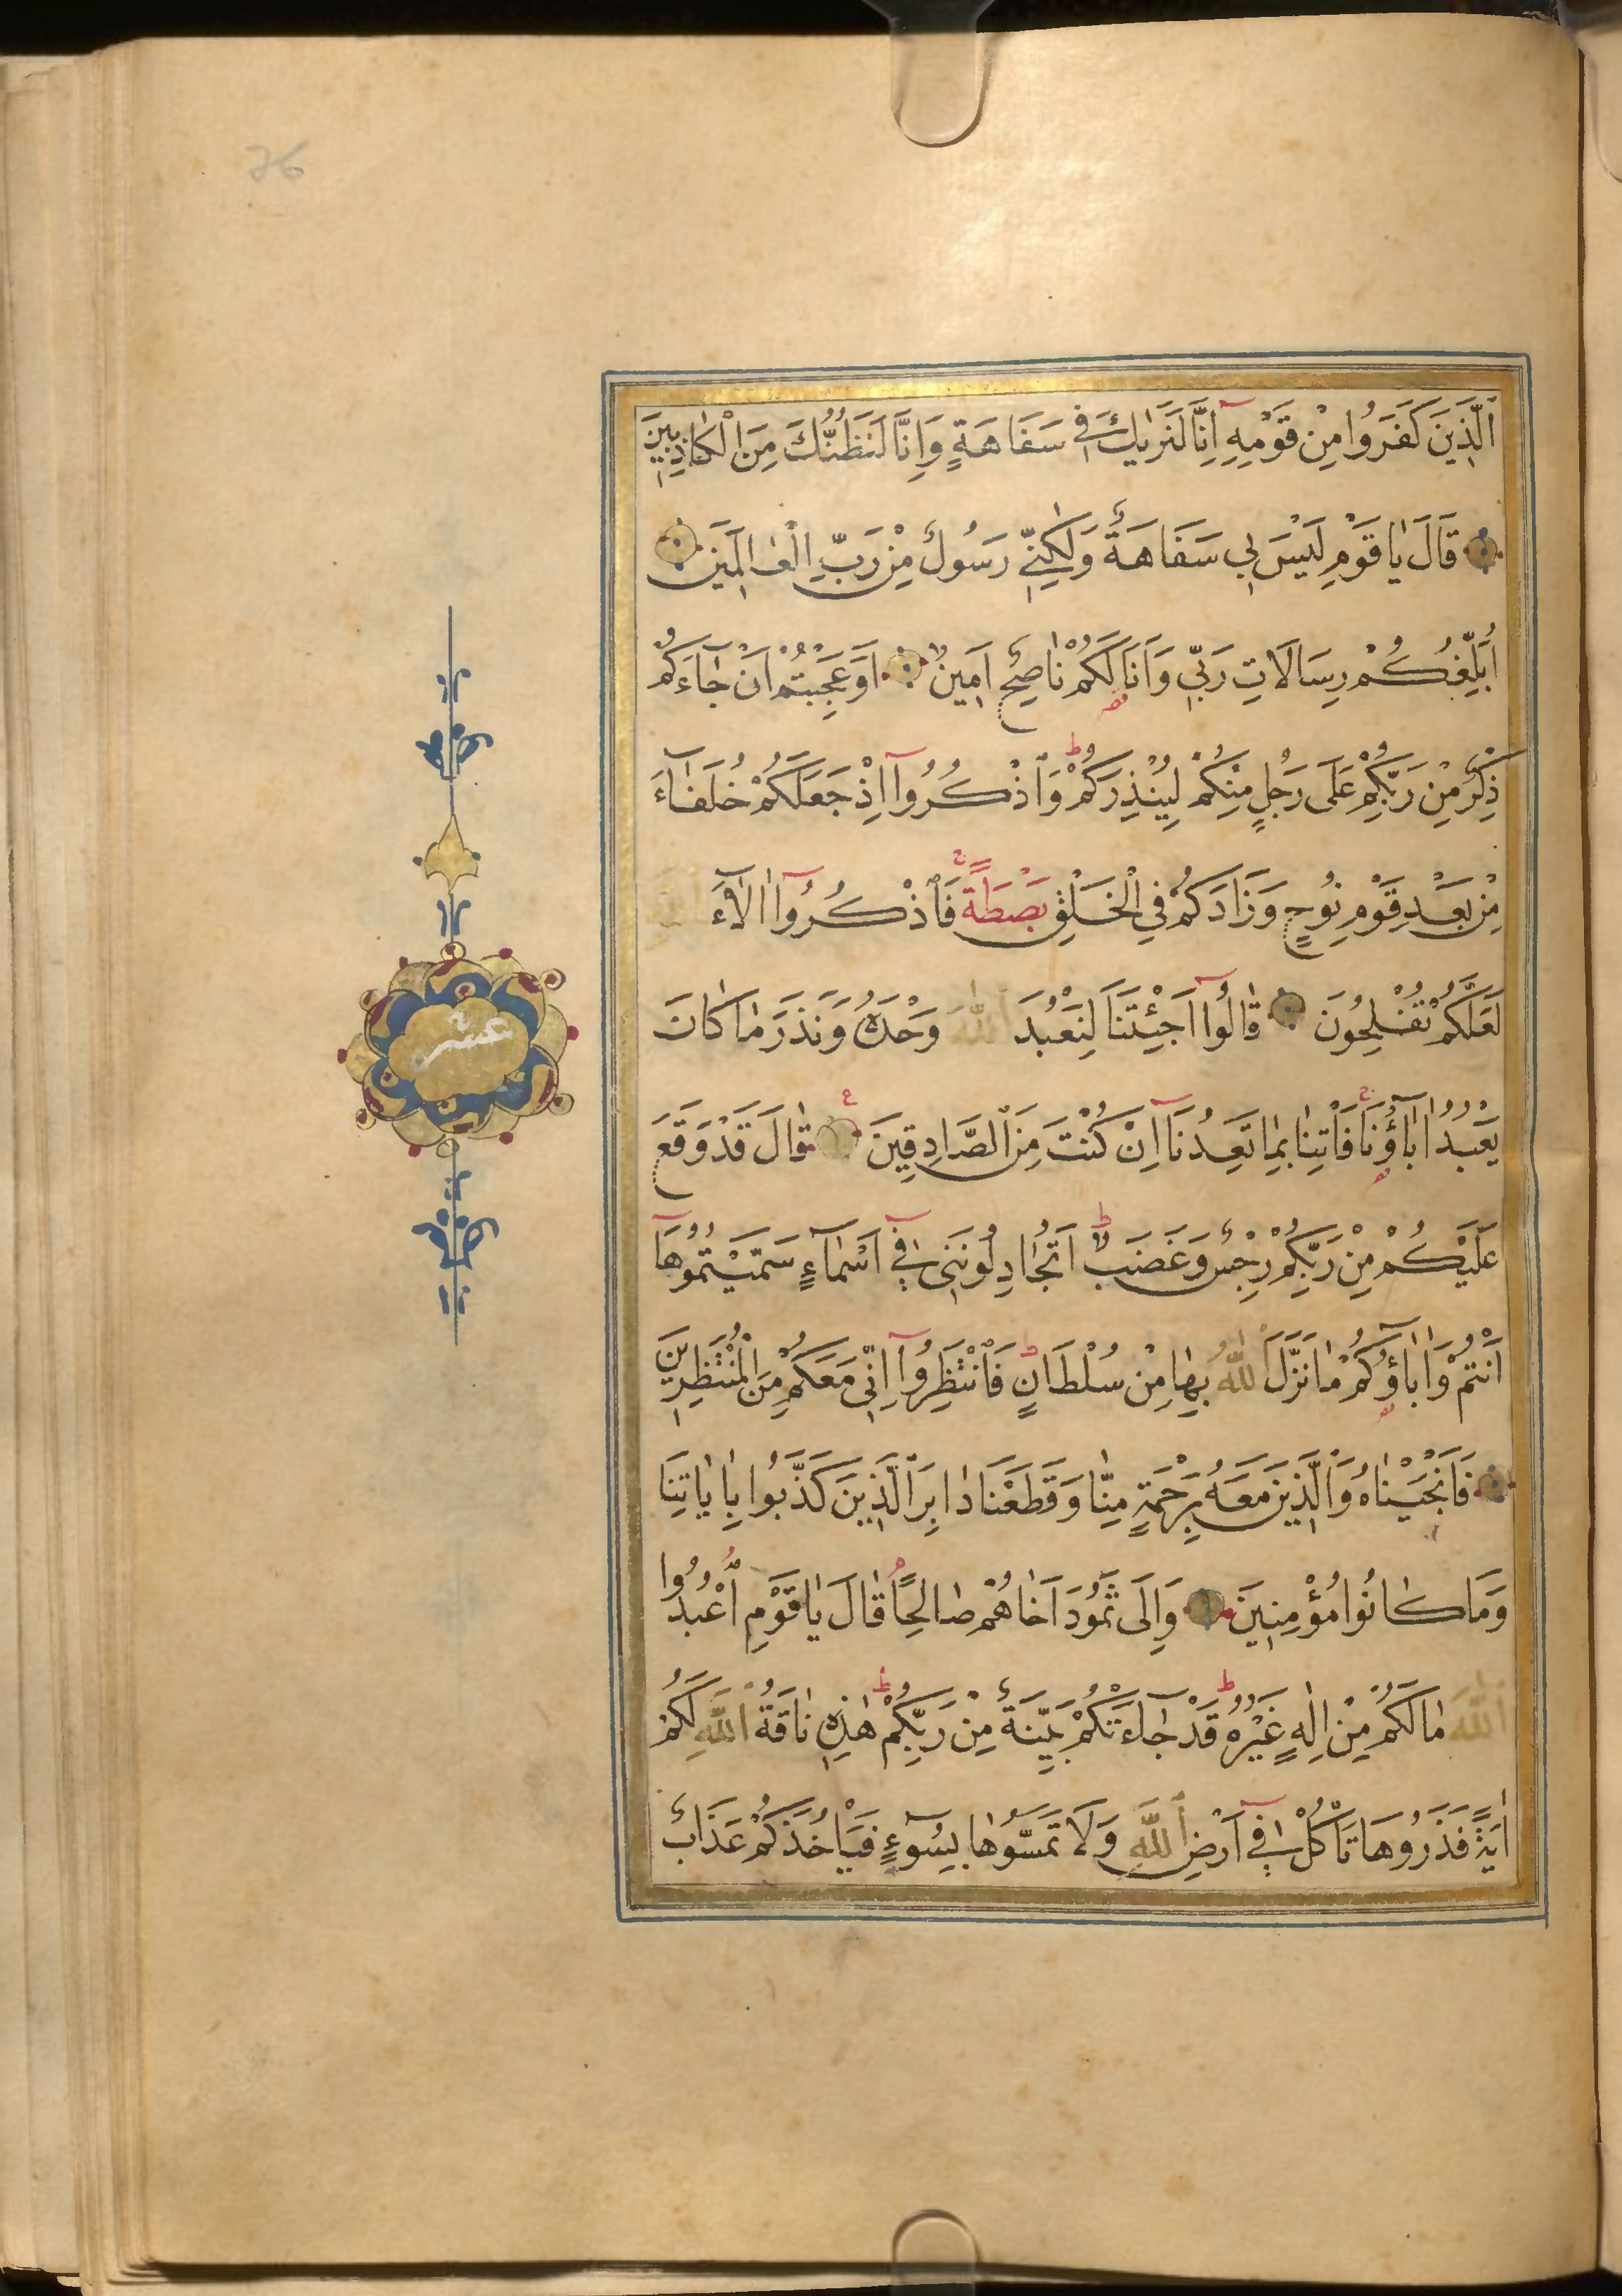 76
اَلَّذِينَ كَفَرُوا مِنْ قَوْمِهِ اِنَّا لَنَرٰيكَ فِي سَفَاهَةٍ وَاِنَّا لَنَظُنُّكَ مِنَ الْكَاذِبِينَ
قَالَ يَا قَوْمِ لَيْسَ بِي سَفَاهَةٌ وَلٰكِنِّي رَسُولٌ مِنْ رَبِّ الْعَالَمِينَ
اُبَلِّغُكُمْ رِسَالَاتِ رَبِّي وَاَنَا لَكُمْ نَاصِحٌ اَمِينٌ اَوَعَجِبْتُمْ اَنْ جَاءَكُمْ
ذِكْرٌ مِنْ رَبِّكُمْ عَلَى رَجُلٍ مِنْكُمْ لِيُنْذِرَكُمْ وَاذْكُرُوا اِذْ جَعَلَكُمْ خُلَفَاءَ
مِنْ بَعْدِ قَوْمِ نُوحٍ وَزَادَكُمْ فِي الْخَلْقِ بَصْطَةً فَاذْكُرُوا اٰلَاءَ اللّٰهِ
لَعَلَّكُمْ تُفْلِحُونَ قَالُوا اَجِئْتَنَا لِنَعْبُدَ اللّٰهَ وَحْدَهُ وَنَذَرَ مَا كَانَ
يَعْبُدُ اٰبَاؤُنَا فَاْتِنَا بِمَا تَعِدُنَا اِنْ كُنْتَ مِنَ الصَّادِقِينَ قَالَ قَدْ وَقَعَ
عَلَيْكُمْ مِنْ رَبِّكُمْ رِجْسٌ وَغَضَبٌ اَتُجَادِلُونَنِي فِي اَسْمَاءٍ سَمَّيْتُمُوهَا
اَنْتُمْ وَاٰبَاؤُكُمْ مَا نَزَّلَ اللّٰهُ بِهَا مِنْ سُلْطَانٍ فَانْتَظِرُوا اِنِّي مَعَكُمْ مِنَ الْمُنْتَظِرِينَ
فَاَنْجَيْنَاهُ وَالَّذِينَ مَعَهُ بِرَحْمَةٍ مِنَّا وَقَطَعْنَا دَابِرَ الَّذِينَ كَذَّبُوا بِاٰيَاتِنَا
وَمَا كَانُوا مُؤْمِنِينَ وَاِلَى ثَمُودَ اَخَاهُمْ صَالِحًا قَالَ يَا قَوْمِ اعْبُدُوا
اللّٰهَ مَا لَكُمْ مِنْ اِلٰهٍ غَيْرُهُ قَدْ جَاءَتْكُمْ بَيِّنَةٌ مِنْ رَبِّكُمْ هٰذِهِ نَاقَةُ اللّٰهِ لَكُمْ
اٰيَةً فَذَرُوهَا تَاْكُلْ فِي اَرْضِ اللّٰهِ وَلَا تَمَسُّوهَا بِسُوءٍ فَيَاْخُذَكُمْ عَذَابٌ
عشر